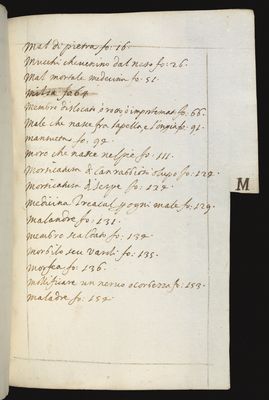 Mal di pietra fo. 16.
Mucchi che venino dal naso fo: 26.
Mal mortale medecina fo. 51.
Milza fo 64
Membro dislocato o roto o impostemat fo. 66.
Male che nasce fra la pelle, e l'ongia fo. 91.
mansueta fo. 92.
more che nasce nel pie fo. 111.
Morsicatura di Can rabbioso o lupo fo: 129.
Morsicatura di Serpe fo: 129.
Medicina Treacal p ogni male fo: 129.
Malandre fo: 131.
Membro scalcato fo: 132.
Morbilo seu varoli fo: 135.
Morfea fo: 136.
Mollificare un nervo o corbezza fo: 153.
maladre fo: 154.
M